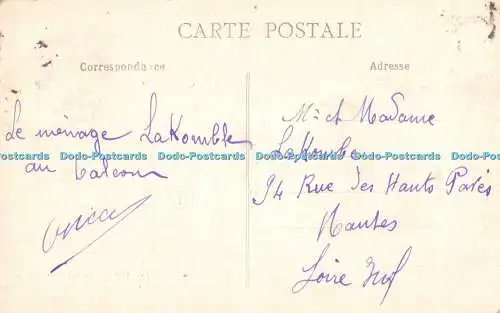 CARTE POSTALE
Correspondance
Adresse
Le ménage LaKomble
au balcon
Mr et Madame
LaKombe
94 Rue des Hants Pavés
Nantes
Loire Inf
Dodo-Postcards Dodo-Postcards Dodo-Postcards Dodo-Postcards Dodo-Postcards Dodo-Postcards Dodo-Postcards